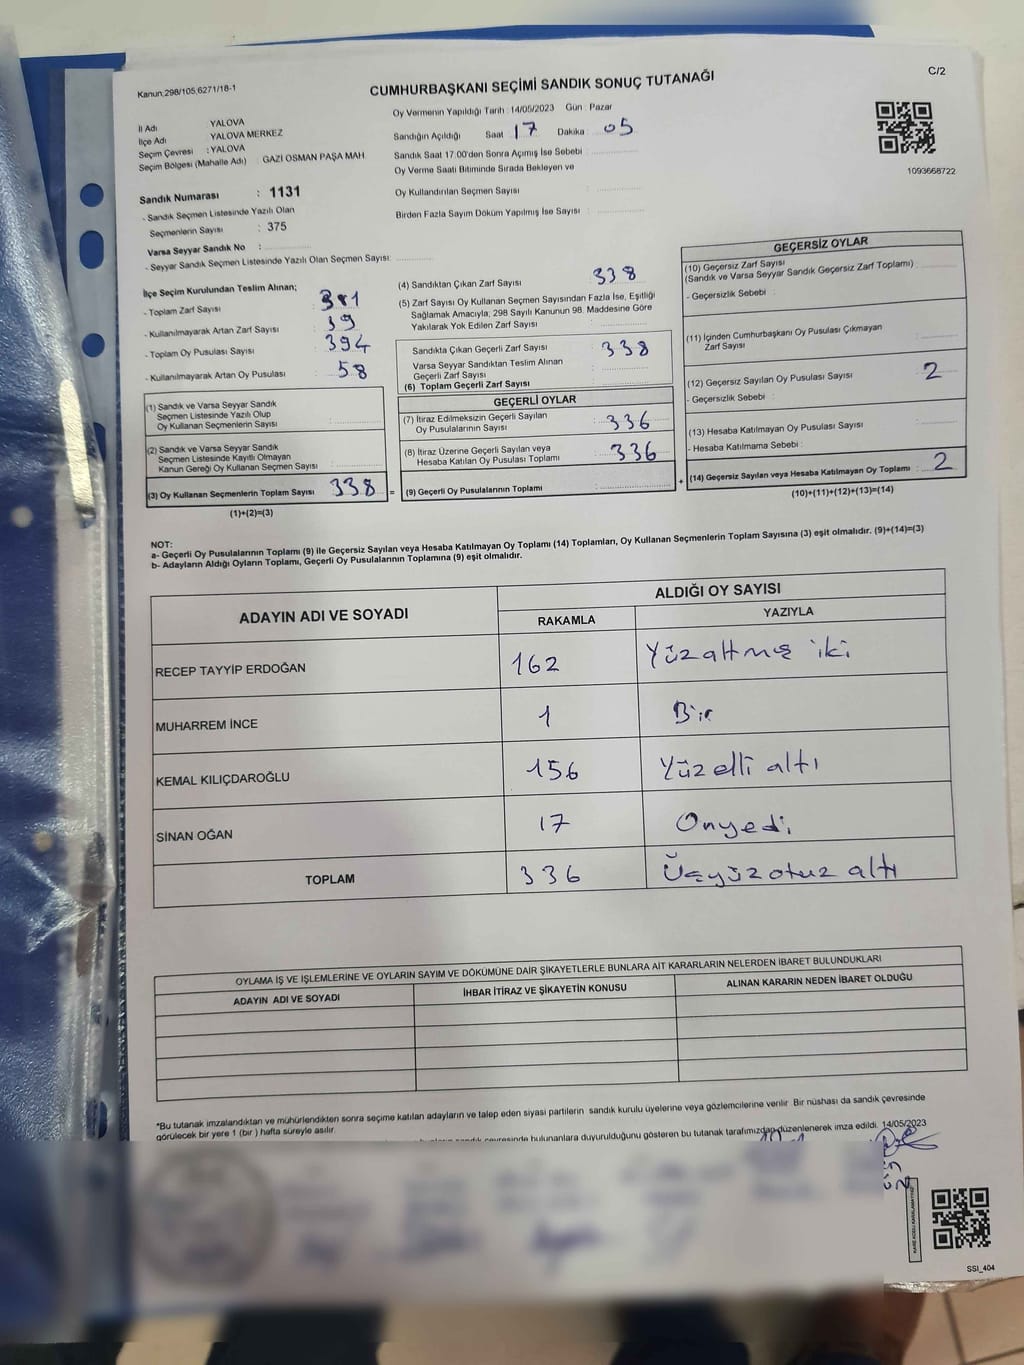 Kanun,298/105,6271/18-1
CUMHURBAŞKANI SEÇİMİ SANDIK SONUÇ TUTANAĞI
C/2
İl Adı YALOVA
İlçe Adı YALOVA MERKEZ
Seçim Çevresi : YALOVA
Seçim Bölgesi (Mahalle Adı) : GAZİ OSMAN PAŞA MAH
Sandık Numarası : 1131
- Sandık Seçmen Listesinde Yazılı Olan
Seçmenlerin Sayısı : 375
Varsa Seyyar Sandık No :
- Seyyar Sandık Seçmen Listesinde Yazılı Olan Seçmen Sayısı:
Oy Vermenin Yapıldığı Tarih : 14/05/2023 Gün : Pazar
Sandığın Açıldığı Saat 17 Dakika : 05
Sandık Saat 17:00'den Sonra Açımış İse Sebebi :
Oy Verme Saati Bitiminde Sırada Bekleyen ve
Oy Kullandırılan Seçmen Sayısı :
Birden Fazla Sayım Döküm Yapılmış İse Sayısı :
1093668722
İlçe Seçim Kurulundan Teslim Alınan;
- Toplam Zarf Sayısı :
- Kullanılmayarak Artan Zarf Sayısı : 39
- Toplam Oy Pusulası Sayısı : 394
- Kullanılmayarak Artan Oy Pusulası : 58
(1) Sandık ve Varsa Seyyar Sandık
Seçmen Listesinde Yazılı Olup
Oy Kullanan Seçmenlerin Sayısı :
(2) Sandık ve Varsa Seyyar Sandık
Seçmen Listesinde Kayıtlı Olmayan
Kanun Gereği Oy Kullanan Seçmen Sayısı :
(3) Oy Kullanan Seçmenlerin Toplam Sayısı : 338
(1)+(2)=(3)
=
(4) Sandıktan Çıkan Zarf Sayısı : 338
(5) Zarf Sayısı Oy Kullanan Seçmen Sayısından Fazla İse, Eşitliği
Sağlamak Amacıyla, 298 Sayılı Kanunun 98. Maddesine Göre
Yakılarak Yok Edilen Zarf Sayısı :
Sandıkta Çıkan Geçerli Zarf Sayısı : 338
Varsa Seyyar Sandıktan Teslim Alınan
Geçerli Zarf Sayısı :
(6) Toplam Geçerli Zarf Sayısı :
GEÇERLİ OYLAR
(7) İtiraz Edilmeksizin Geçerli Sayılan
Oy Pusulalarının Sayısı : 336
(8) İtiraz Üzerine Geçerli Sayılan veya
Hesaba Katılan Oy Pusulası Toplamı : 336
(9) Geçerli Oy Pusulalarının Toplamı :
+
GEÇERSİZ OYLAR
(10) Geçersiz Zarf Sayısı
(Sandık ve Varsa Seyyar Sandık Geçersiz Zarf Toplamı) :
- Geçersizlik Sebebi :
(11) İçinden Cumhurbaşkanı Oy Pusulası Çıkmayan
Zarf Sayısı :
(12) Geçersiz Sayılan Oy Pusulası Sayısı : 2
- Geçersizlik Sebebi :
(13) Hesaba Katılmayan Oy Pusulası Sayısı :
- Hesaba Katılmama Sebebi :
(14) Geçersiz Sayılan veya Hesaba Katılmayan Oy Toplamı : 2
(10)+(11)+(12)+(13)=(14)
NOT:
a- Geçerli Oy Pusulalarının Toplamı (9) ile Geçersiz Sayılan veya Hesaba Katılmayan Oy Toplamı (14) Toplamları, Oy Kullanan Seçmenlerin Toplam Sayısına (3) eşit olmalıdır. (9)+(14)=(3)
b- Adayların Aldığı Oyların Toplamı, Geçerli Oy Pusulalarının Toplamına (9) eşit olmalıdır.
ADAYIN ADI VE SOYADI ALDIĞI OY SAYISI
RAKAMLA YAZIYLA
RECEP TAYYİP ERDOĞAN 162 Yüzaltmış iki
MUHARREM İNCE 1 Bir
KEMAL KILIÇDAROĞLU 156 Yüzelli altı
SİNAN OĞAN 17 Onyedi
TOPLAM 336 Üçyüzotuz altı
OYLAMA İŞ VE İŞLEMLERİNE VE OYLARIN SAYIM VE DÖKÜMÜNE DAİR ŞİKAYETLERLE BUNLARA AİT KARARLARIN NELERDEN İBARET BULUNDUKLARI
ADAYIN ADI VE SOYADI İHBAR İTİRAZ VE ŞİKAYETİN KONUSU ALINAN KARARIN NEDEN İBARET OLDUĞU
*Bu tutanak imzalandıktan ve mühürlendikten sonra seçime katılan adayların ve talep eden siyasi partilerin sandık kurulu üyelerine veya gözlemcilerine verilir. Bir nüshası da sandık çevresinde
görülecek bir yere 1 (bir) hafta süreyle asılır.
sandık çevresinde bulunanlara duyurulduğunu gösteren bu tutanak tarafımızdan düzenlenerek imza edildi. 14/05/2023
SSI_404